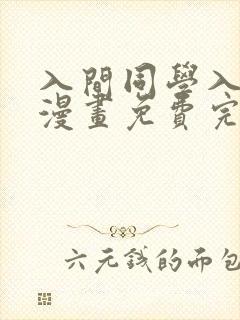 入間同學入
漫畫免費完
六元錢的而包